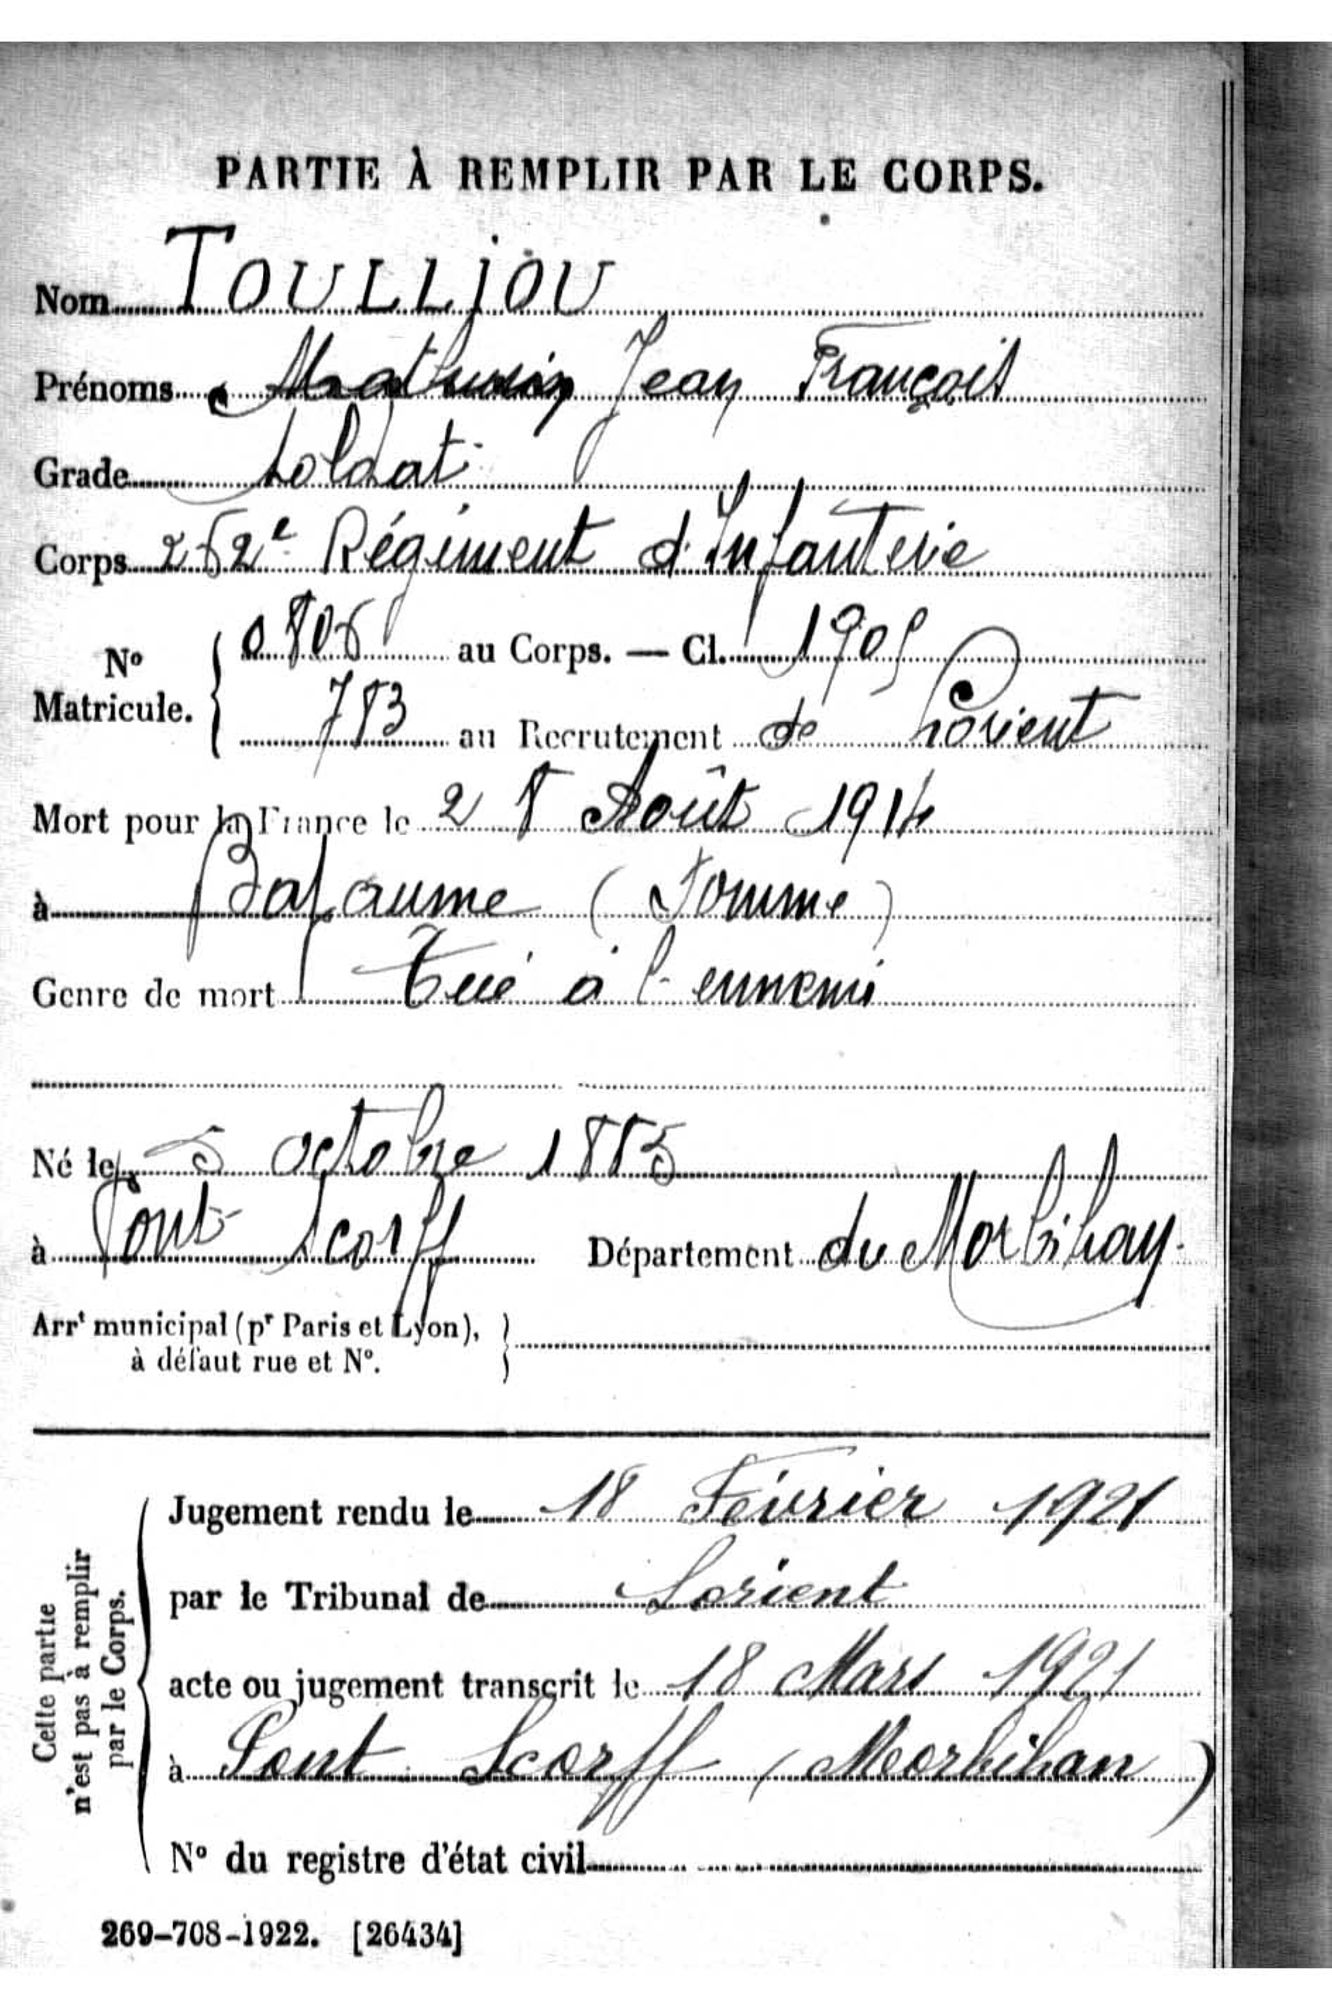 PARTIE À REMPLIR PAR LE CORPS.
Nom TOULLIOU
Prénoms Mathurin Jean François
Grade Soldat
Corps 262e Régiment d'Infanterie
No Matricule. 0806 au Corps. — Cl. 1905
783 au Recrutement de Lorient
Mort pour la France le 28 Août 1914
à Bapaume (Somme)
Genre de mort Tué à l'ennemi
Né le 5 octobre 1885
à Pont-Scorff Département du Morbihan.
Arrt municipal (pr Paris et Lyon),
à défaut rue et No.
Cette partie
n'est pas à remplir
par le Corps.
Jugement rendu le 18 Février 1921
par le Tribunal de Lorient
acte ou jugement transcrit le 18 Mars 1921
à Pont Scorff (Morbihan)
No du registre d'état civil
269-708-1922. [26434]